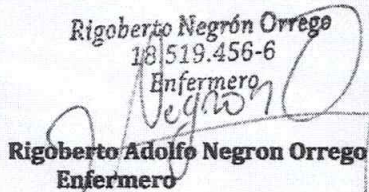 Rigoberto Negrón Orrego
18 519.456-6
Enfermero
Negron
Rigoberto Adolfo Negron Orrego
Enfermero